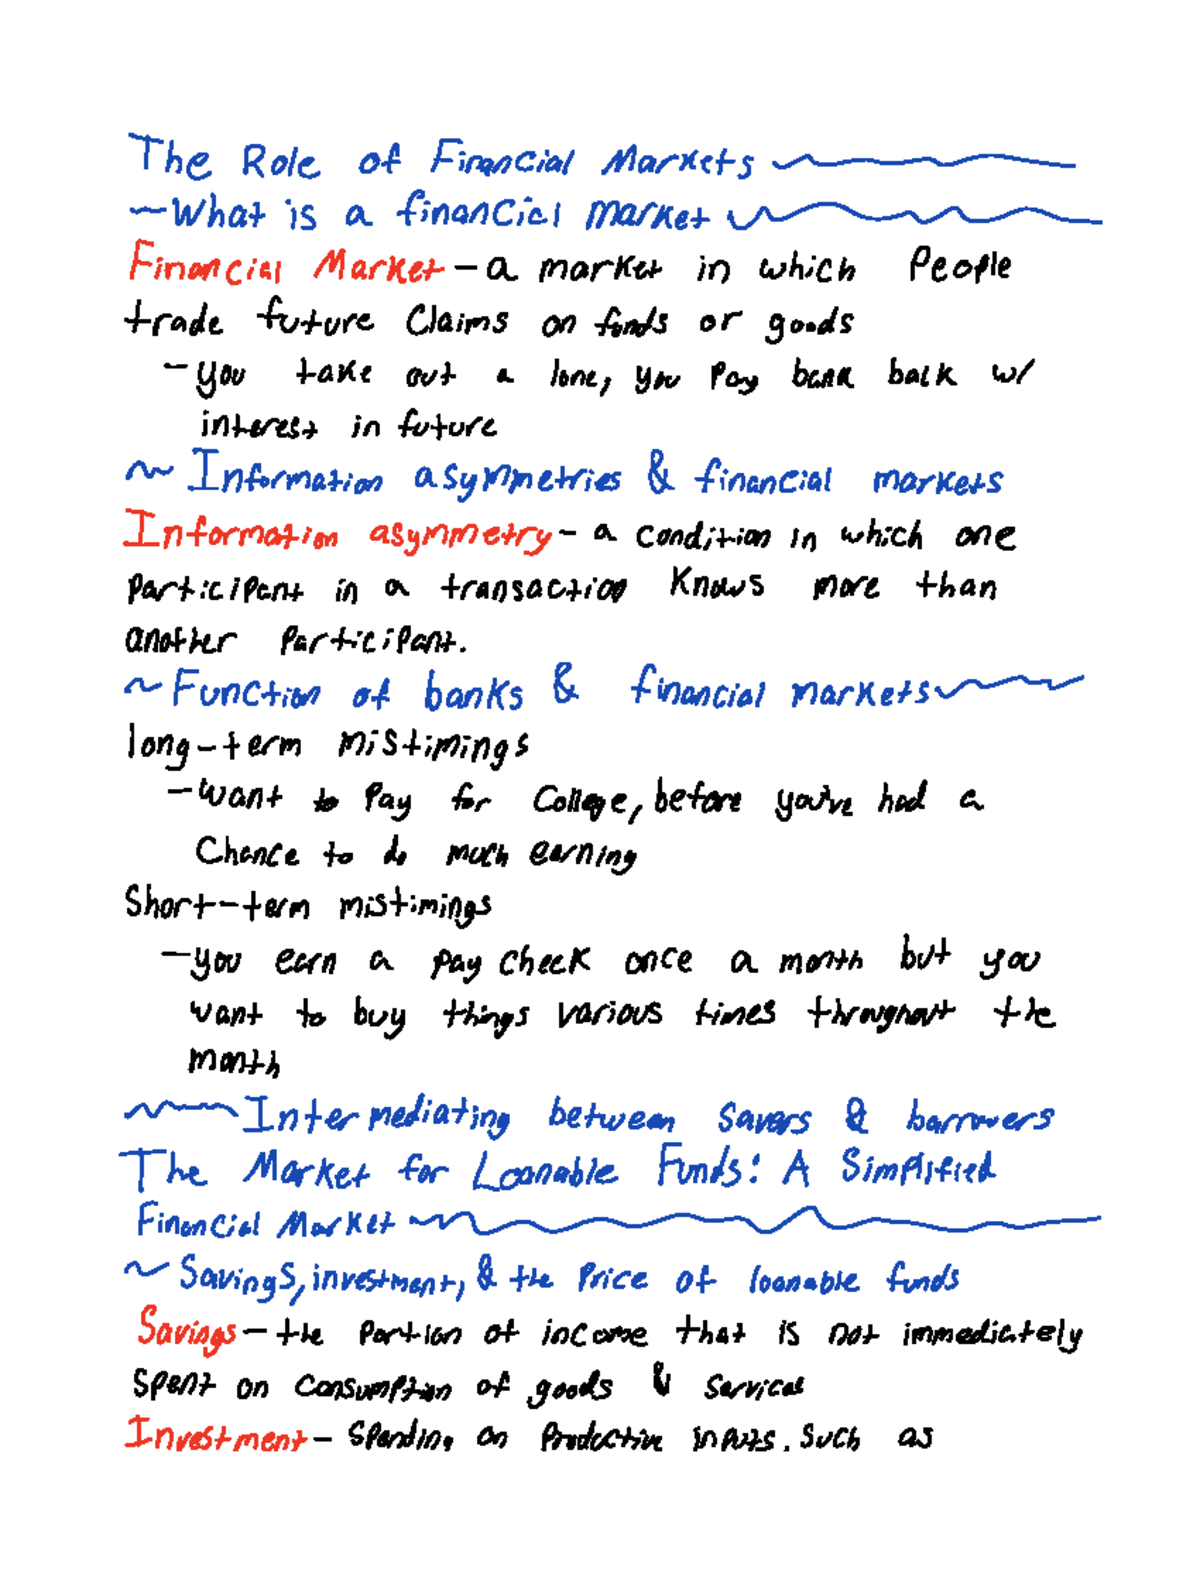 The Role of Financial Markets
-What is a financial market
Financial Market - a market in which People
trade future Claims on funds or goods
- you take out a lone, you Pay bank back w/
interest in future
~ Information asymmetries & financial markets
Information asymmetry - a condition in which one
Participant in a transaction Knows more than
another Participant.
~ Function of banks & financial markets
long-term mistimings
- want to Pay for College, before you've had a
Chance to do much earning
Short-term mistimings
- you earn a pay check once a month but you
want to buy things various times throughout the
month
~ Intermediating between Savers & borrowers
The Market for Loanable Funds: A Simplified
Financial Market
~ Savings, investment, & the Price of loanable funds
Savings - the Portion of income that is not immediately
Spent on Consumption of goods & Services
Investment - Spending on Productive inputs. Such as